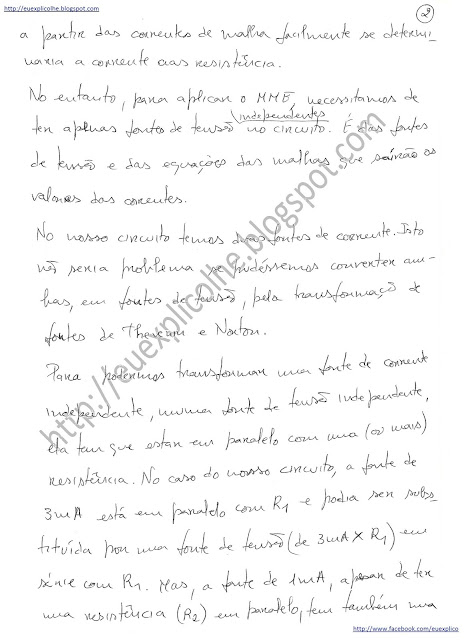 http://euexplicolhe.blogspot.com
2
a partir das correntes de malha facilmente se determi-
naria a corrente nas resistências.
No entanto, para aplicar o MME, necessitamos de
ter apenas fontes de tensão independentes no circuito. É das fontes
de tensão e das equações das malhas que sairão os
valores das correntes.
No nosso circuito temos duas fontes de corrente. Isto
não seria problema se pudéssemos converter am-
bas, em fontes de tensão, pela transformação de
fontes de Thevenin e Norton.
Para podermos transformar uma fonte de corrente
independente, numa fonte de tensão independente,
ela tem que estar em paralelo com uma (ou mais)
resistência. No caso do nosso circuito, a fonte de
3mA está em paralelo com R1 e podia ser subs-
tituída por uma fonte de tensão (de 3mA X R1) em
série com R1. Mas, a fonte de 1mA, apesar de ter
uma resistência (R2) em paralelo, tem também uma
http://euexplicolhe.blogspot.com
http://www.facebook.com/euexplico